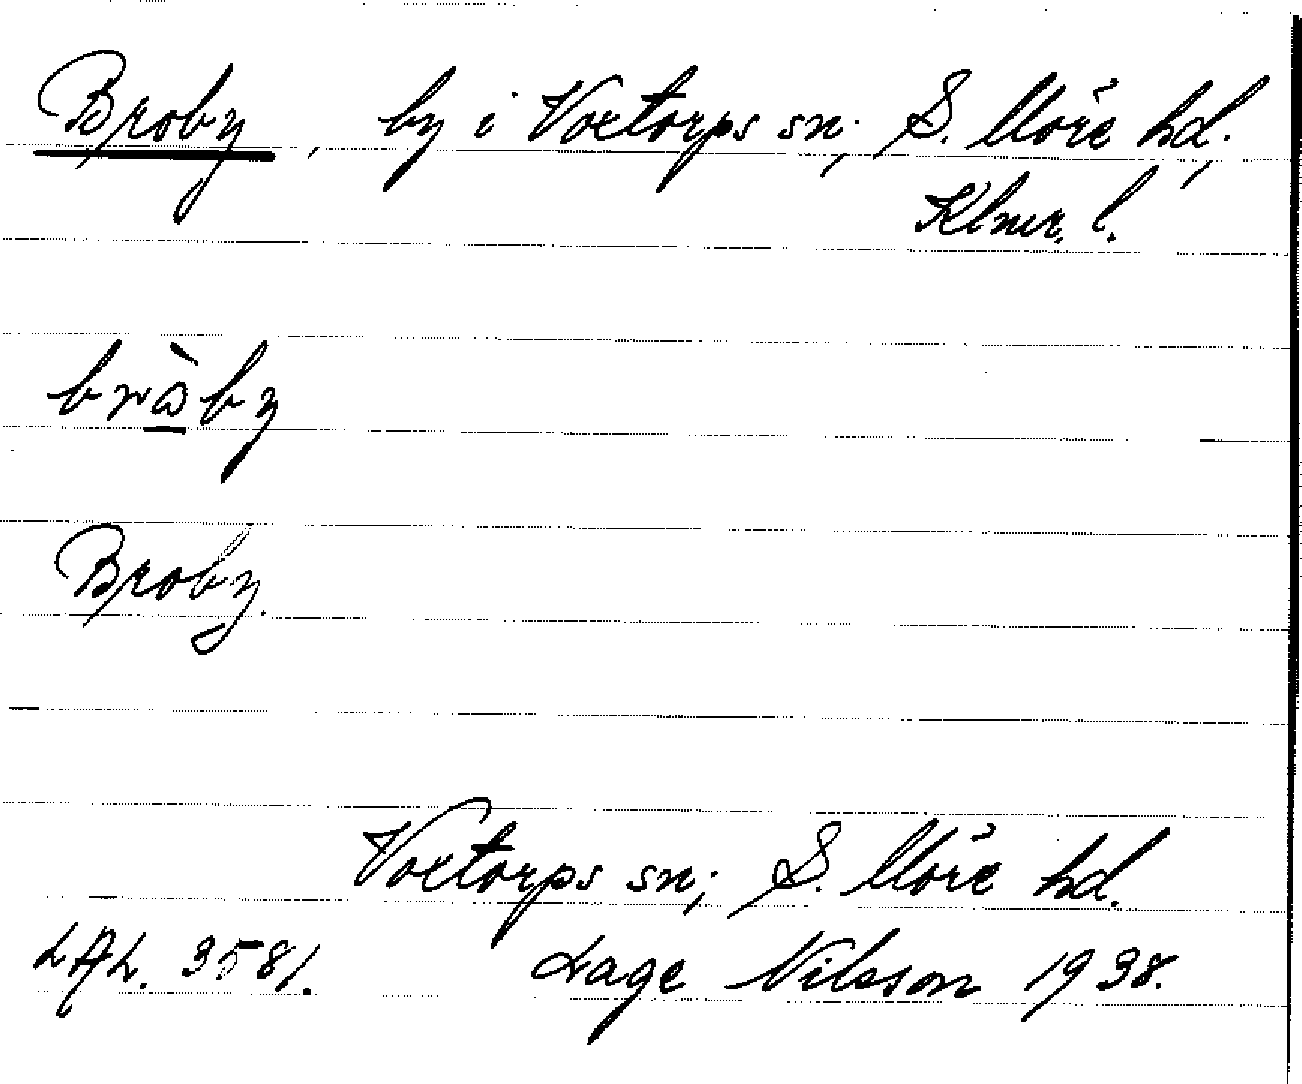 Broby, by i Voxtorps sn; S. Möre hd,
Klmr. l.
bròby
Broby.
Voxtorps sn; S. Möre hd.
LAL. 3581. Lage Nilsson 1938.